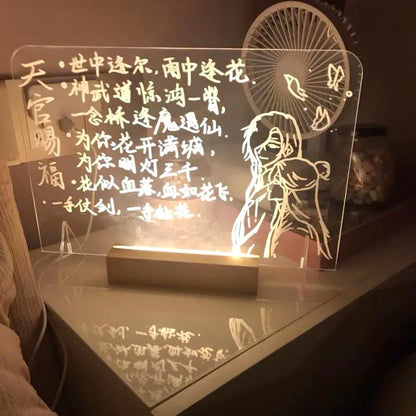 天官赐福
·世中逢尔,雨中逢花.
·神武道惊鸿一瞥,
一念桥逢魔遇仙.
·为你花开满城,
为你明灯三千
·花似血落,血如花飞.
·一手仗剑,一手执花.